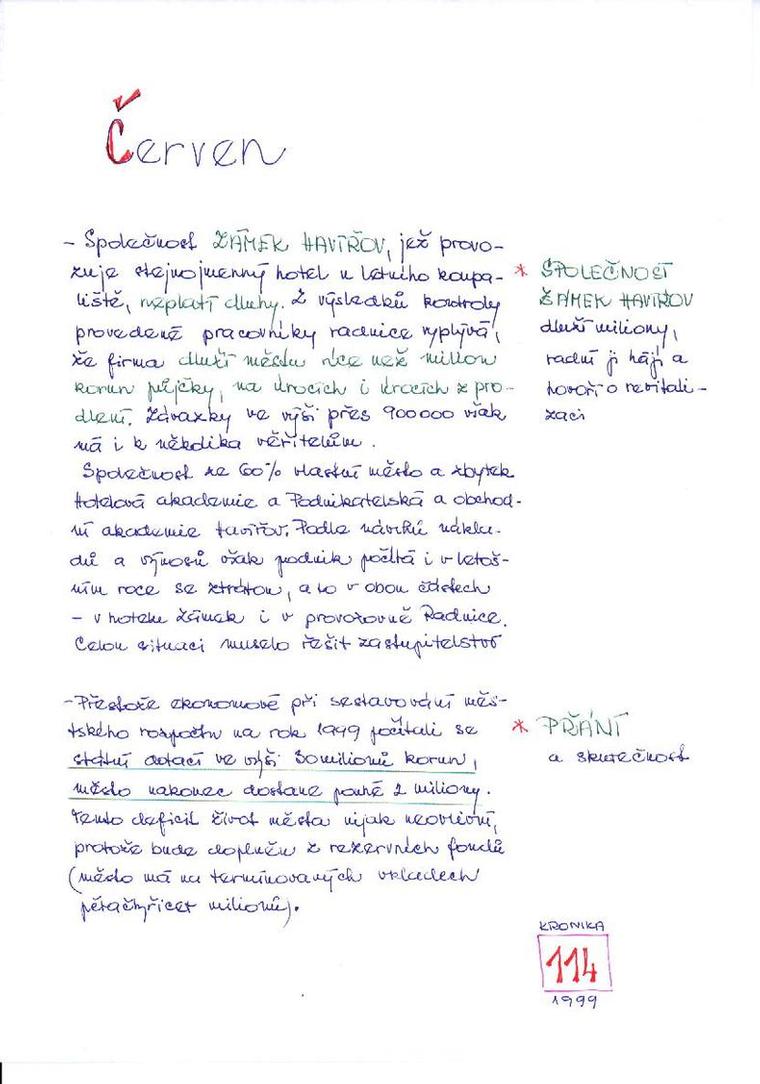 Červen
- Společnost ZÁMEK HAVÍŘOV, jež provo-
zuje stejnojmenný hotel u letního koupa-
liště, neplatí dluhy. Z výsledků kontroly
provedené pracovníky radnice vyplývá,
že firma dluží městu více než milion
korun půjčky, na úrocích i úrocích z pro-
dlení. Závazky ve výši přes 900000 však
má i k několika věřitelům.
Společnost ze 60% vlastní město a zbytek
Hotelová akademie a Podnikatelská a obchod-
ní akademie Havířov. Podle návrhů nákla-
dů a výnosů však podnik počítá i v letoš-
ním roce se ztrátou, a to v obou částech
- v hotelu Zámek i v provozovně Radnice.
Celou situaci muselo řešit zastupitelstvo
* SPOLEČNOST
ZÁMEK HAVÍŘOV
dluží miliony,
radní ji hájí a
hovoří o revitali-
zaci
- Přestože ekonomové při sestavování měs-
tského rozpočtu na rok 1999 počítali se
státní dotací ve výši 30 milionů korun,
město nakonec dostane pouhé 2 miliony.
Tento deficit život města nijak neovlivní,
protože bude doplněn z rezervních fondů
(město má na termínovaných vkladech
pětačtyřicet milionů).
* PŘÁNÍ
a skutečnost
KRONIKA
114
1999